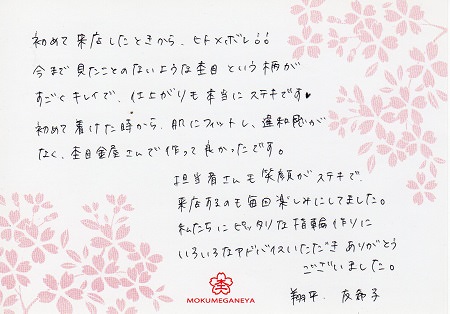 初めて来店したときから、ヒトメボレ!!
今まで見たことのないような杢目という柄が
すごくキレイで、仕上がりも本当にステキです♥
初めて着けた時から、肌にフィットし、違和感が
なく、杢目金屋さんで作って良かったです。
担当者さんも笑顔がステキで、
来店するのも毎回楽しみにしてました。
私たちにピッタリな指輪作りに
いろいろなアドバイスいただきありがとう
ございました。
翔平、友希子
杢
MOKUMEGANEYA